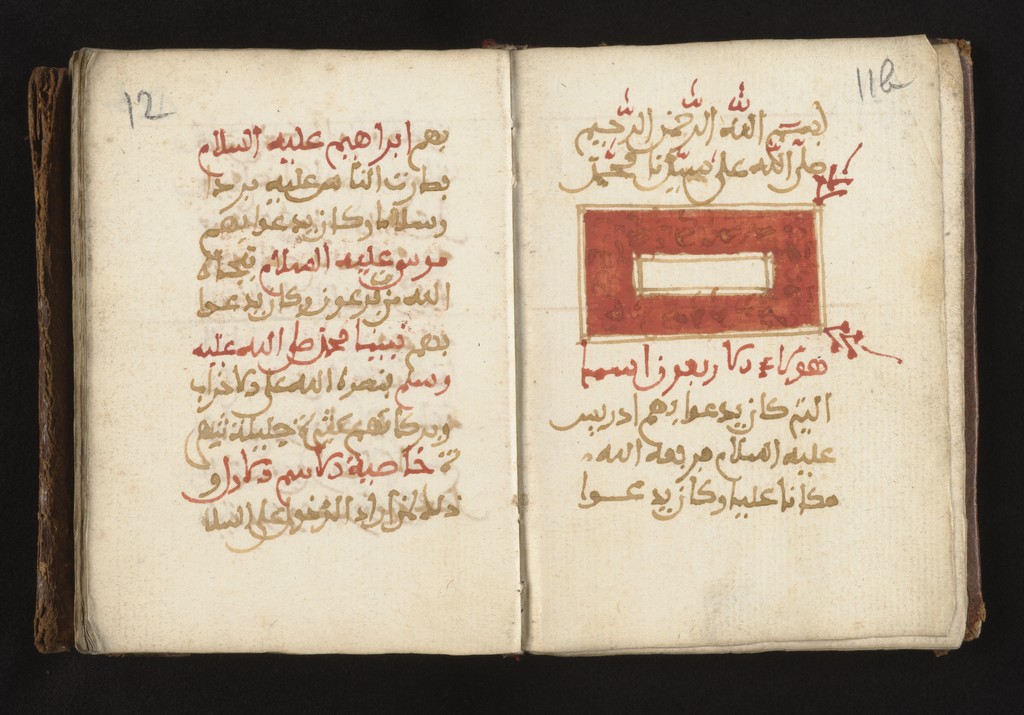 11b
بسم الله الرحمن الرحيم
صلى الله على سيدنا محمد
هؤلاء الاربعون اسما
التي كان يدعوا بهم ادريس
عليه السلام فرفعه الله
مكانا عليا وكان يدعوا
12
بهم ابراهيم عليه السلام
بصارت النار عليه بردا
وسلاما وكان يدعوا بهم
موسى عليه السلام فنجاه
الله من فرعون وكان يدعوا
بهم نبينا محمد صلى الله عليه
وسلم بنصره الله على الاحزاب
وبركاتهم كثيرة جليلة
خاصية الاسم الاول
ذلك لمن اراد الدخول على السلا